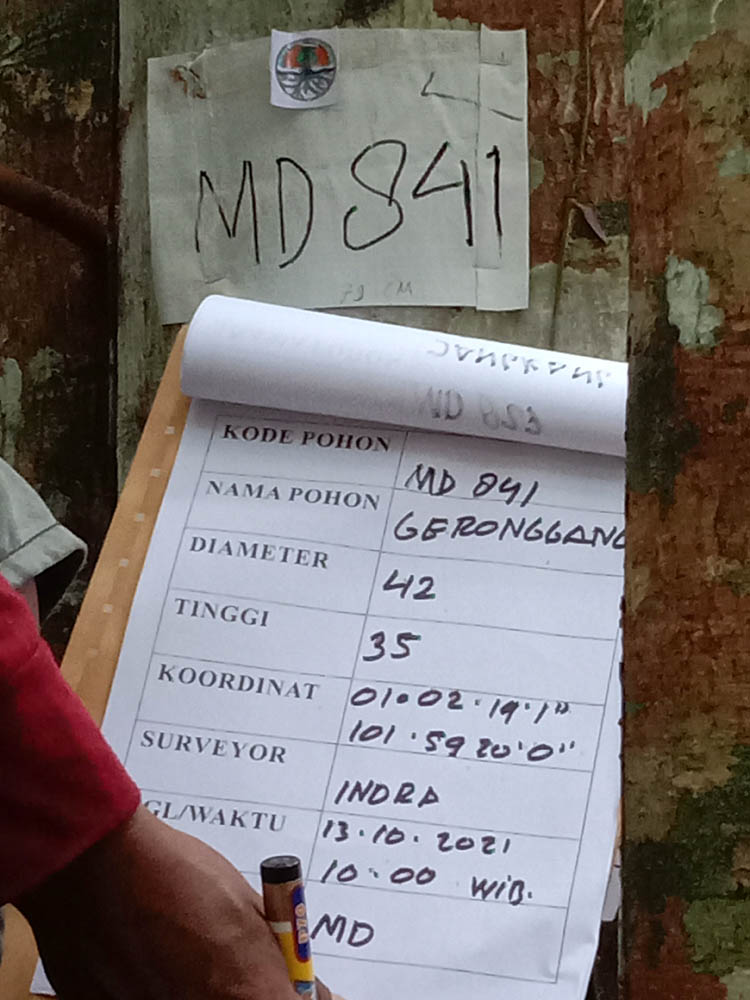 MD 841
79 CM
MD 853
KODE POHON MD 841
NAMA POHON GERONGGANG
DIAMETER 42
TINGGI 35
KOORDINAT 01.02.19.1"
101.59 20'0"
SURVEYOR INDRA
GL/WAKTU 13.10.2021
10:00 WIB.
MD